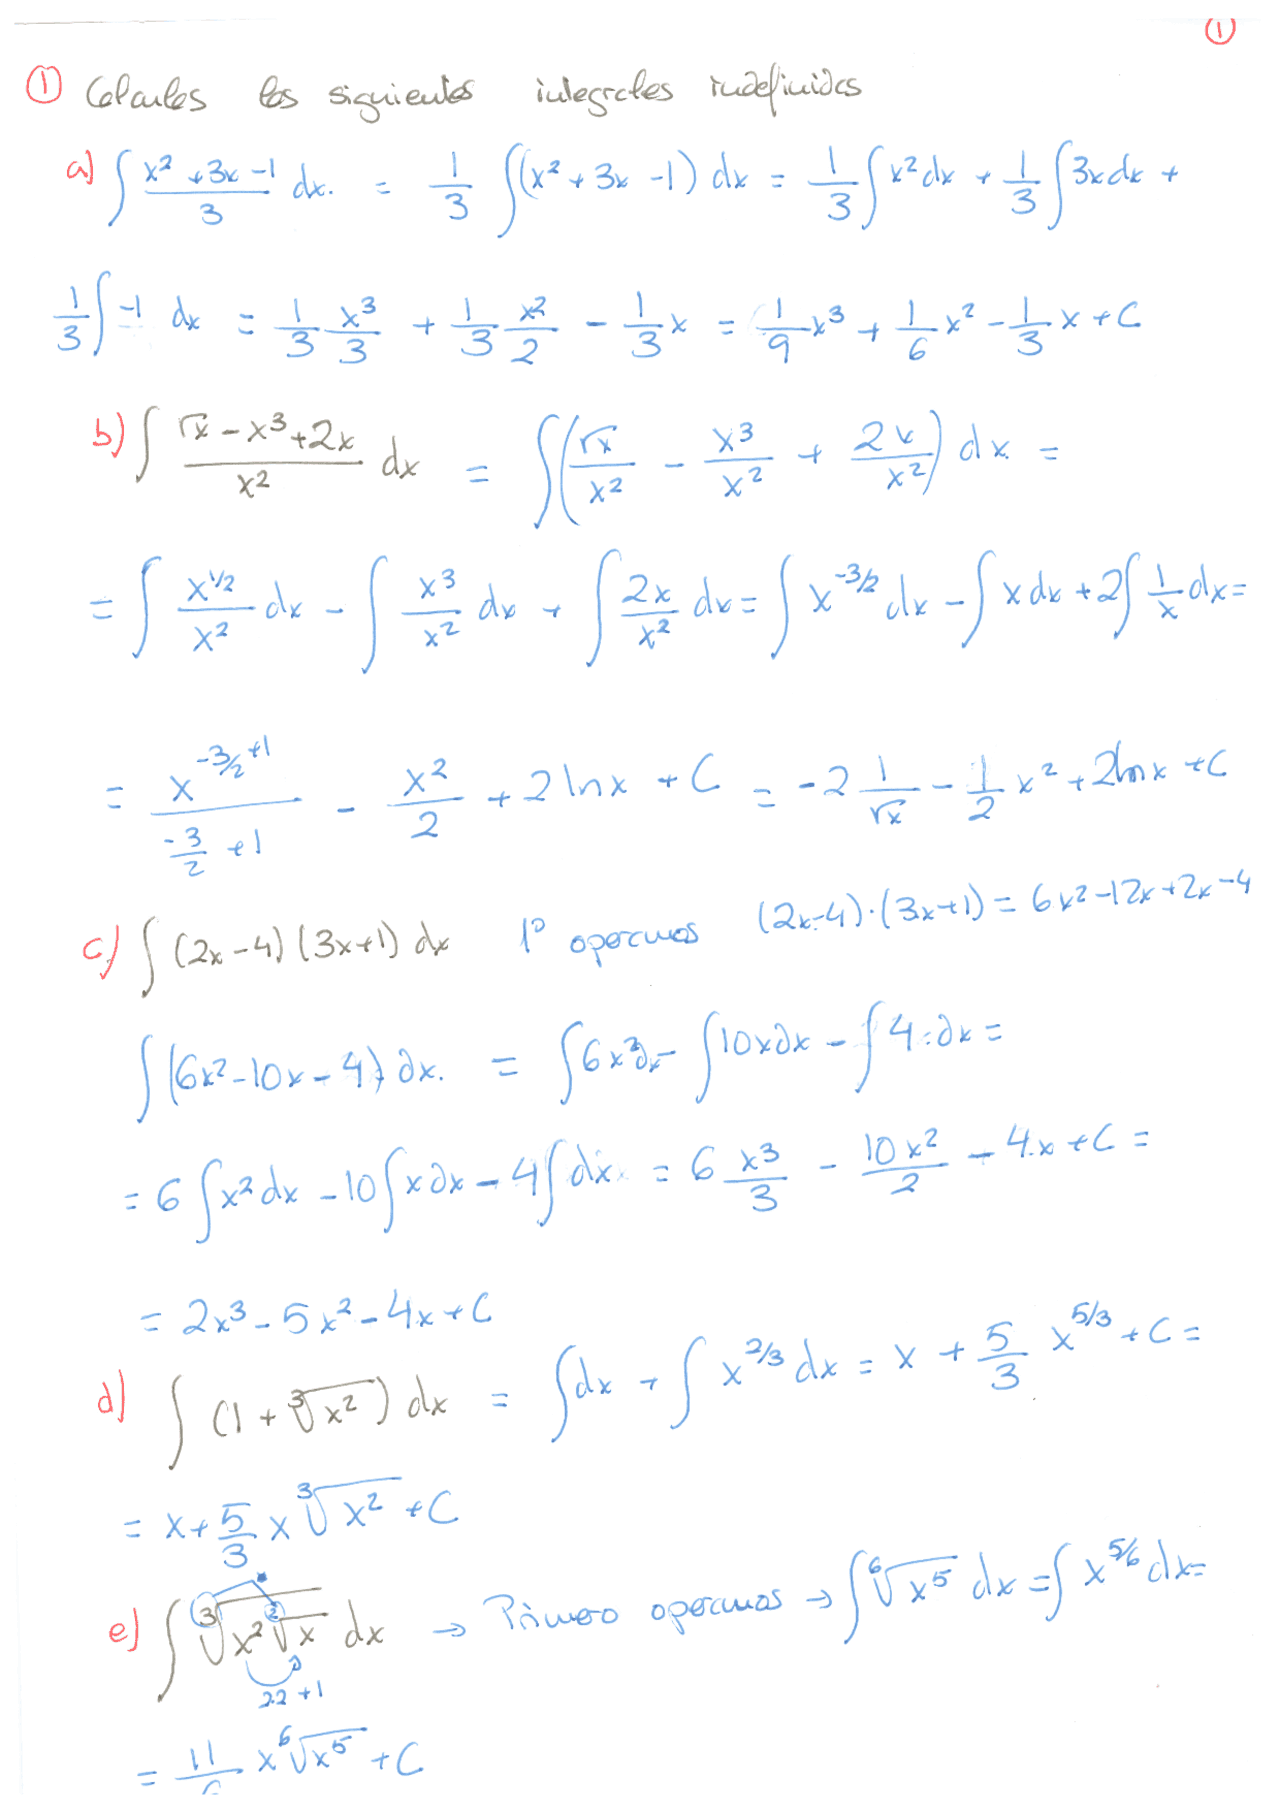 ①
① Calcules las siguientes integrales indefinidas
a) ∫ (x² + 3x - 1)/3 dx. = 1/3 ∫(x² + 3x - 1) dx = 1/3 ∫x² dx + 1/3 ∫3x dx +
1/3 ∫-1 dx = 1/3 x³/3 + 1/3 x²/2 - 1/3 x = 1/9 x³ + 1/6 x² - 1/3 x + C
b) ∫ (√x - x³ + 2x)/x² dx = ∫(√x/x² - x³/x² + 2x/x²) dx =
= ∫ x^(1/2)/x² dx - ∫ x³/x² dx + ∫ 2x/x² dx = ∫ x^(-3/2) dx - ∫x dx + 2∫ 1/x dx =
= x^(-3/2 + 1)/(-3/2 + 1) - x²/2 + 2 ln x + C = -2 1/√x - 1/2 x² + 2 ln x + C
c) ∫ (2x - 4)(3x + 1) dx 1º operamos (2x-4)·(3x+1) = 6x² - 12x + 2x - 4
∫(6x² - 10x - 4) dx. = ∫6x² dx - ∫10x dx - ∫4·dx =
= 6 ∫x² dx - 10 ∫x dx - 4 ∫dx = 6 x³/3 - 10x²/2 - 4x + C =
= 2x³ - 5x² - 4x + C
d) ∫ (1 + ∛x²) dx = ∫dx + ∫ x^(2/3) dx = x + 5/3 x^(5/3) + C =
= x + 5/3 x ∛x² + C
e) ∫ ∛(x² ²√x) dx → Primero operamos → ∫ ⁶√x⁵ dx = ∫ x^(5/6) dx =
2·2 + 1
= 11/6 x ⁶√x⁵ + C